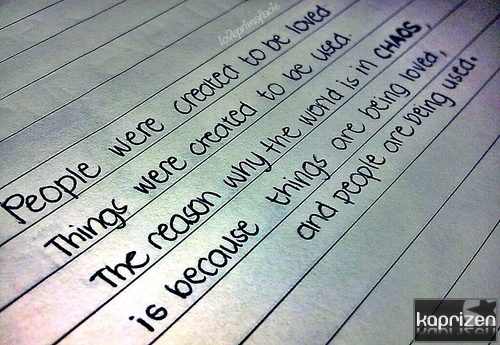 People were created to be loved
Things were created to be used.
The reason why the world is in CHAOS,
is because things are being loved,
and people are being used.
kaprizen